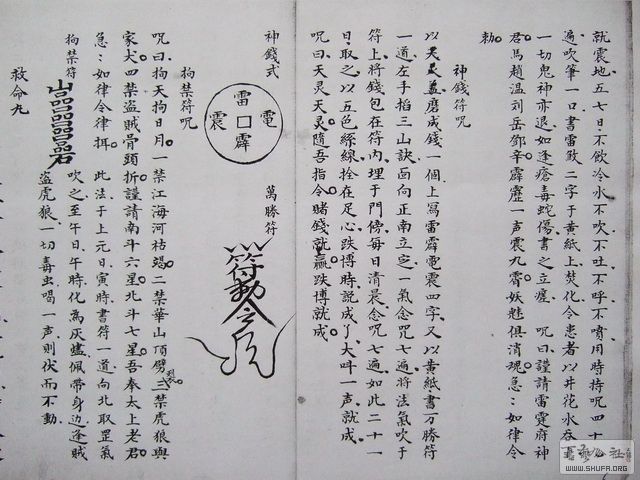 就震地五七日·不飲冷水不吹·不吐·不呼·不噴·用時持呪四十
遍·吹筆一口·書雷殿二字于黄紙上·焚化·令患者以井花水吞
一切鬼神亦退·如逢瘡毒蛇傷·書之立瘥　呪曰·謹請雷霆府神
君·馬趙温刘岳鄧辛·霹靂一声震九霄·妖魅俱消魂·急：如律令
勅
神錢符呪
磨成錢一個·上寫雷霹電震四字·又以黄紙書万勝符
一道·左手掐三山訣·面向正南立定·一氣念咒七遍·將法氣吹于
符上·將錢包在符內·埋于門傍·每日清晨念呪七遍·如此二十一
日·取之以五色絲線·拴在足心·跌博時說成了·大叫一声就成
呪曰·天灵天灵·隨吾指令·賭錢就贏·跌博就成
神錢式
雷
電
震
霹
萬勝符
拘禁符呪
呪曰·拘天拘日月·一禁江海河枯竭·二禁華山頂劈裂·三禁虎狼與
家犬·四禁盜賊骨頭折·謹請南斗六星·北斗七星·吾奉太上老君
急：如律令律拜　此法于上元日·寅時書符一道·向北取罡氣
拘禁符
吹之·至午日·午時化為灰燼·佩帶身边·逢賊
盜虎狼·一切毒虫·喝一声則伏而不動
救命丸
WWW.SHUFA.ORG